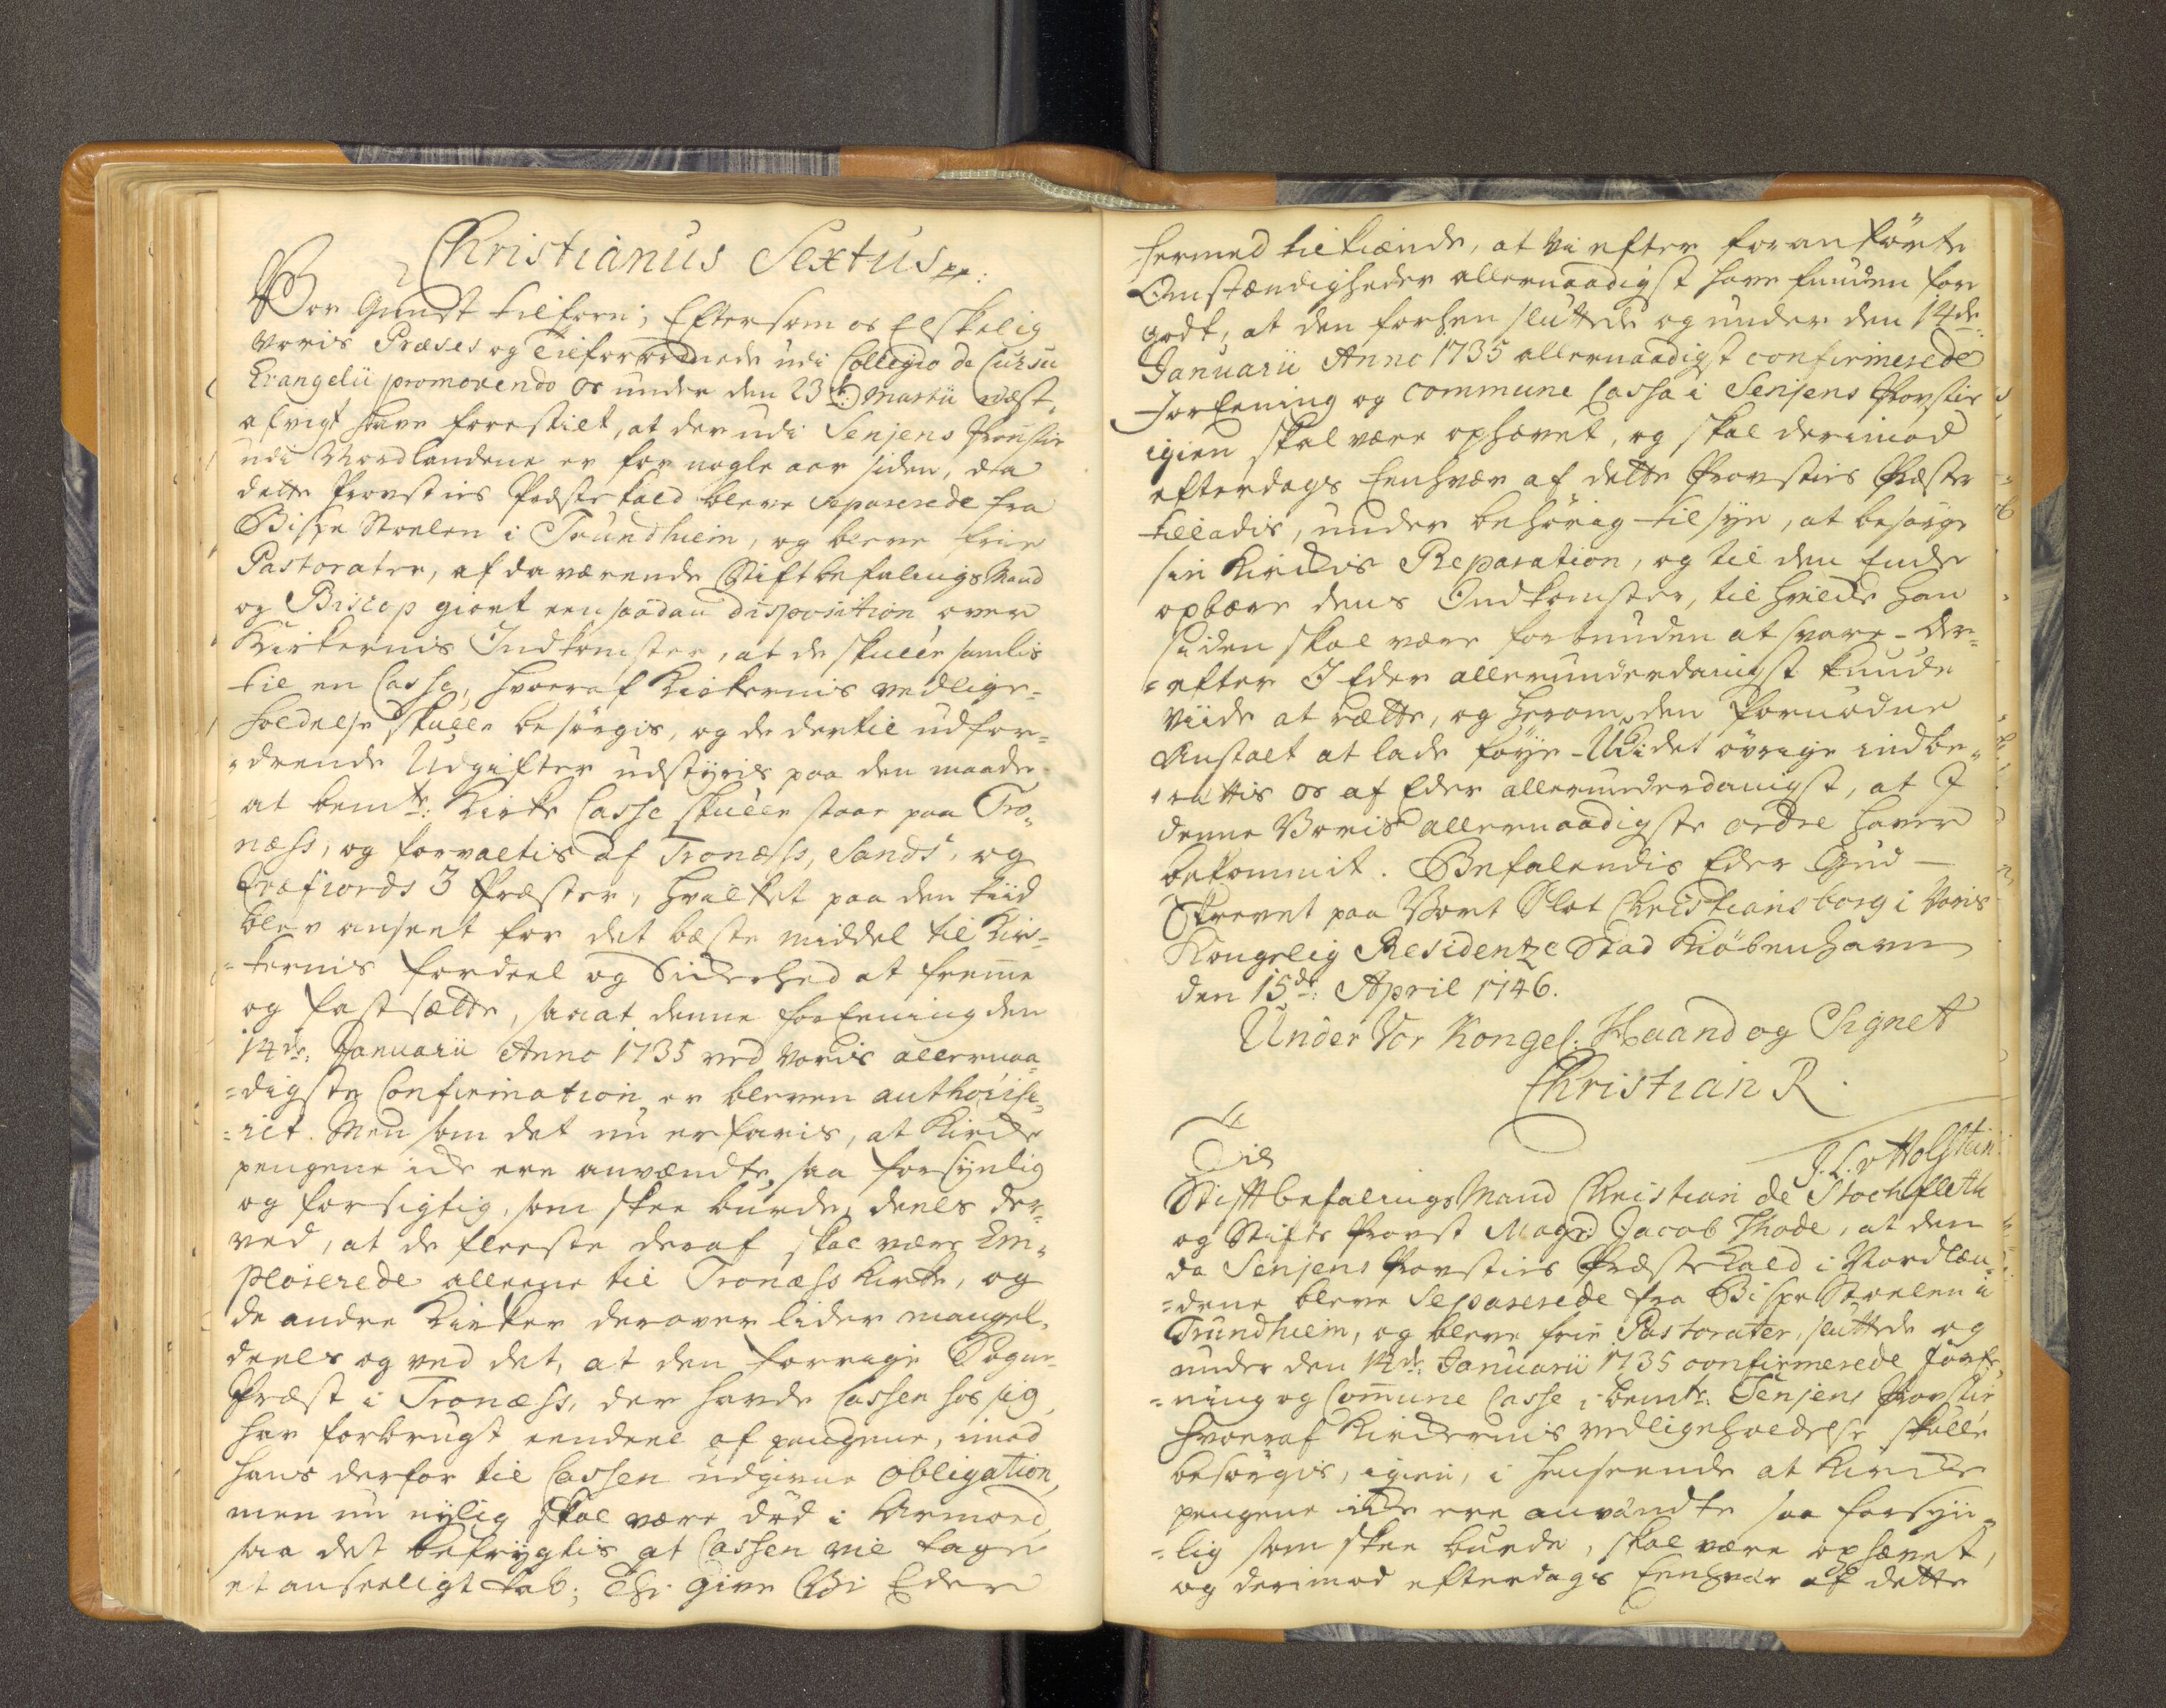 Christianus Sextus
Vor Gunst tilforn; Eftersom os Elskelig
Voris Præses og Tilforordnede udi Collegio de Cursu
Evangelii promovendo os under den 23de Martii næst
afvigt have forestilt, at der udi Senjens Provstie
udi Nordlandene er for nogle aar siden, da
dette Provsties Præste kald bleve separerede fra
Bispe Stoelen i Trundhiem, og bleve frie
Pastorater, af da værende Stiftbefalings Mand
og Biscop giort een saadan disposition over
Kirkernis Indkomster, at de skulle samlis
til en Casse, hvoraf Kirkernis vedlige-
holdelse skulle besørgis, og de dertil udfor-
=drende Udgifter udstyris paa den maade
at bemte: Kirke Casse skulle staae paa Tro-
næss, og forvaltis af Tronæss, Sands, og
Qvæfiords 3 Præster, hvilket paa den tiid
blev anseet for det bæste middel til Kir-
=kernis fordeel og Sickerhed at fremme
og fastsætte, saa at denne foreening den
14de: Januarii Anno 1735 ved Voris allernaa-
=digste Confirmation er bleven authorise-
=ret. Men som det nu erfaris, at Kircke
pengene icke ere anvændte, saa forsynlig
og forsigtig, som skee burde, deels der-
ved, at de fleeste deraf skal være Em-
ploierede alleene til Tronæss Kirke, og
de andre Kirker derover lider mangel,
deels og ved det, at den forrige Sogne-
Præst i Tronæss, der havde Cassen hos sig,
har forbrugt eendeel af pengene, imod
hans derfor til Cassen udgivne obligation,
men nu nylig skal være død i Armoed,
saa det befrygtis at Cassen vil tage
et anseeligt tab; Thi give Vi Eder
hermed tilkiende, at Vi efter foranførte
Omstændigheder allernaadigst have funden for
godt, at den forhen sluttede og under den 14de
Januarii Anno 1735 allernaadigst confirmerede
Foreening og commune Cassa i Senjens Provstie
igien skal være ophævet, og skal derimod
efterdags Eenhver af dette Provsties Præster
tilladis, under behörig tilsyn, at besörge
sin Kirckes Reparation, og til den Ende
opbære dens Indkomster, til hvilcke han
siden skal være forbunden at svare - Der-
=efter I Eder allerunderdanigst kunde
viide at rætte, og herom den fornødne
Anstalt at lade föye - Udi det övrige indbe-
=rættis os af Eder allerunderdanigst, at I
denne Voris allernaadigste ordre haver
bekommit. Befalendis Eder Gud -
Skrevet paa Vort Slot Christiansborg i Voris
Kongelig Residentze Stad Kiöbenhavn
den 15de: April 1746.
Under Vor Kongel: Haand og Signet
Christian R.
J. L. v Holstein
Til
Stiftbefalings Mand Christian de Stochfleth
og Stifts Provst Magr: Jacob Thode, at den
da Senjens Provsties Præste Kald i Nordlan-
=dene bleve Separerede fra Bispe Stoelen i
Trundhiem, og bleve frie Pastorater, sluttede og
under den 14de: Januarii 1735 confirmerede Foree-
=ning og Commune Casse i bemte: Senjens Provstie
hvoraf Kirckernis vedligeholdelse skulle
besörgis, igien, i henseende at Kircke
pengene icke ere användte saa forsyn-
=lig som skee burde, skal være ophævet,
og derimod efterdags Eenhver af dette